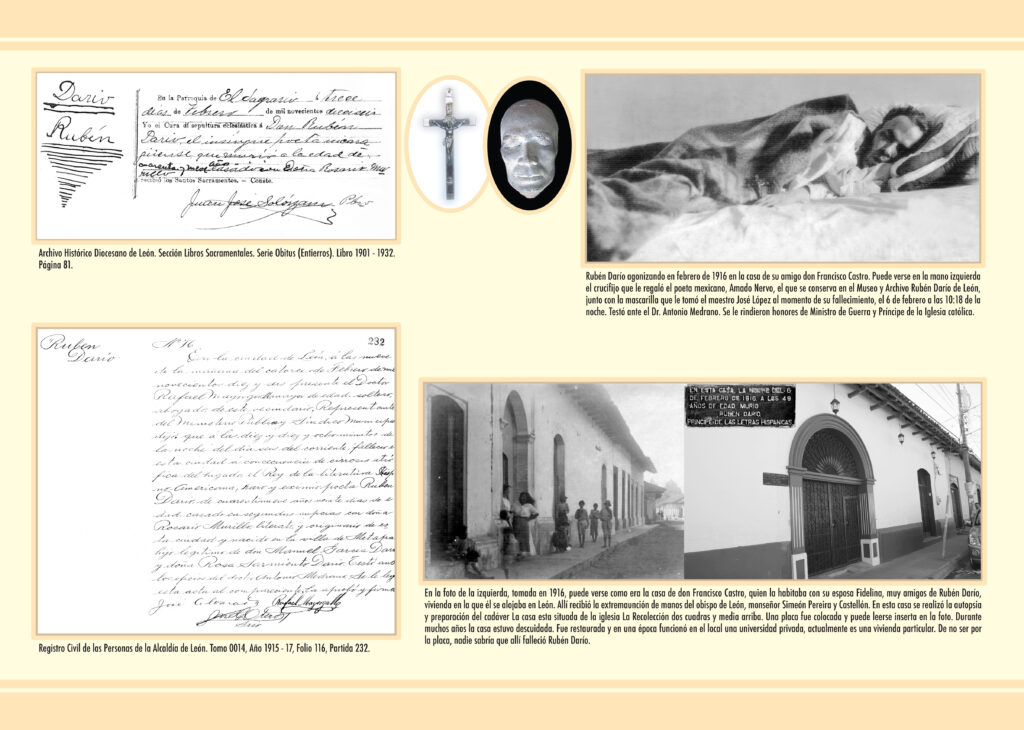 Darío
Rubén
En la Parroquia de El Sagrario á trece
días de Febrero de mil novecientos dieciseis
Yo el Cura dí sepultura eclesiástica á Don Rubén
Darío, el insigne poeta
que murió a la edad de
cuarenta y nueve años casado con Doña Rosario Mu
rillo recibió los Santos Sacramentos. – Conste.
Juan José Solórzano Pbro
Archivo Histórico Diocesano de León. Sección Libros Sacramentales. Serie Obitus (Entierros). Libro 1901 - 1932.
Página 81.
Rubén Darío agonizando en febrero de 1916 en la casa de su amigo don Francisco Castro. Puede verse en la mano izquierda
el crucifijo que le regaló el poeta mexicano, Amado Nervo, el que se conserva en el Museo y Archivo Rubén Darío de León,
junto con la mascarilla que le tomó el maestro José López al momento de su fallecimiento, el 6 de febrero a las 10:18 de la
noche. Testó ante el Dr. Antonio Medrano. Se le rindieron honores de Ministro de Guerra y Príncipe de la Iglesia católica.
Ruben
Dario
232
En la ciudad de León, á las nueve
de la mañana del catorce de Febrero de mil
novecientos diez y seis presente el Doctor
Rafael Mayorga mayor de edad, soltero,
abogado, de este vecindario, Representante
del Ministerio Público y Síndico Municipal
dijo: que a las diez y diez y ocho minutos de
la noche del dia seis del corriente, falleció en
esta ciudad a consecuencia de cirrosis atró
fica del higado, el Rey de la literatura Hispa
no Americana, raro y eximio poeta Ruben
Dario, de cuarentinueve años veinte dias de e
dad, casado en segundas nupcias con doña
Rosario Murillo, literato, y originario de es
ta ciudad y nacido en la villa de Metapa
hijo legítimo de don Manuel Garcia Dario
y doña Rosa Sarmiento Dario. Testó ante
los oficios del doct. Antonio Medrano. Se le leyó
esta acta al compareciente, la aprobó y firma
José
Srio
Registro Civil de las Personas de la Alcaldía de León. Tomo 0014, Año 1915 - 17, Folio 116, Partida 232.
EN ESTA CASA, LA NOCHE DEL 6
DE FEBRERO DE 1916, A LAS 49
AÑOS DE EDAD MURIO
RUBEN DARIO
PRINCIPE DE LAS LETRAS HISPANICAS
En la foto de la izquierda, tomada en 1916, puede verse como era la casa de don Francisco Castro, quien la habitaba con su esposa Fidelina, muy amigos de Rubén Darío,
vivienda en la que él se alojaba en León. Allí recibió la extremaunción de manos del obispo de León, monseñor Simeón Pereira y Castellón. En esta casa se realizó la autopsia
y preparación del cadáver La casa esta situada de la iglesia La Recolección dos cuadras y media arriba. Una placa fue colocada y puede leerse inserta en la foto. Durante
muchos años la casa estuvo descuidada. Fue restaurada y en una época funcionó en el local una universidad privada, actualmente es una vivienda particular. De no ser por
la placa, nadie sabría que allí falleció Rubén Darío.